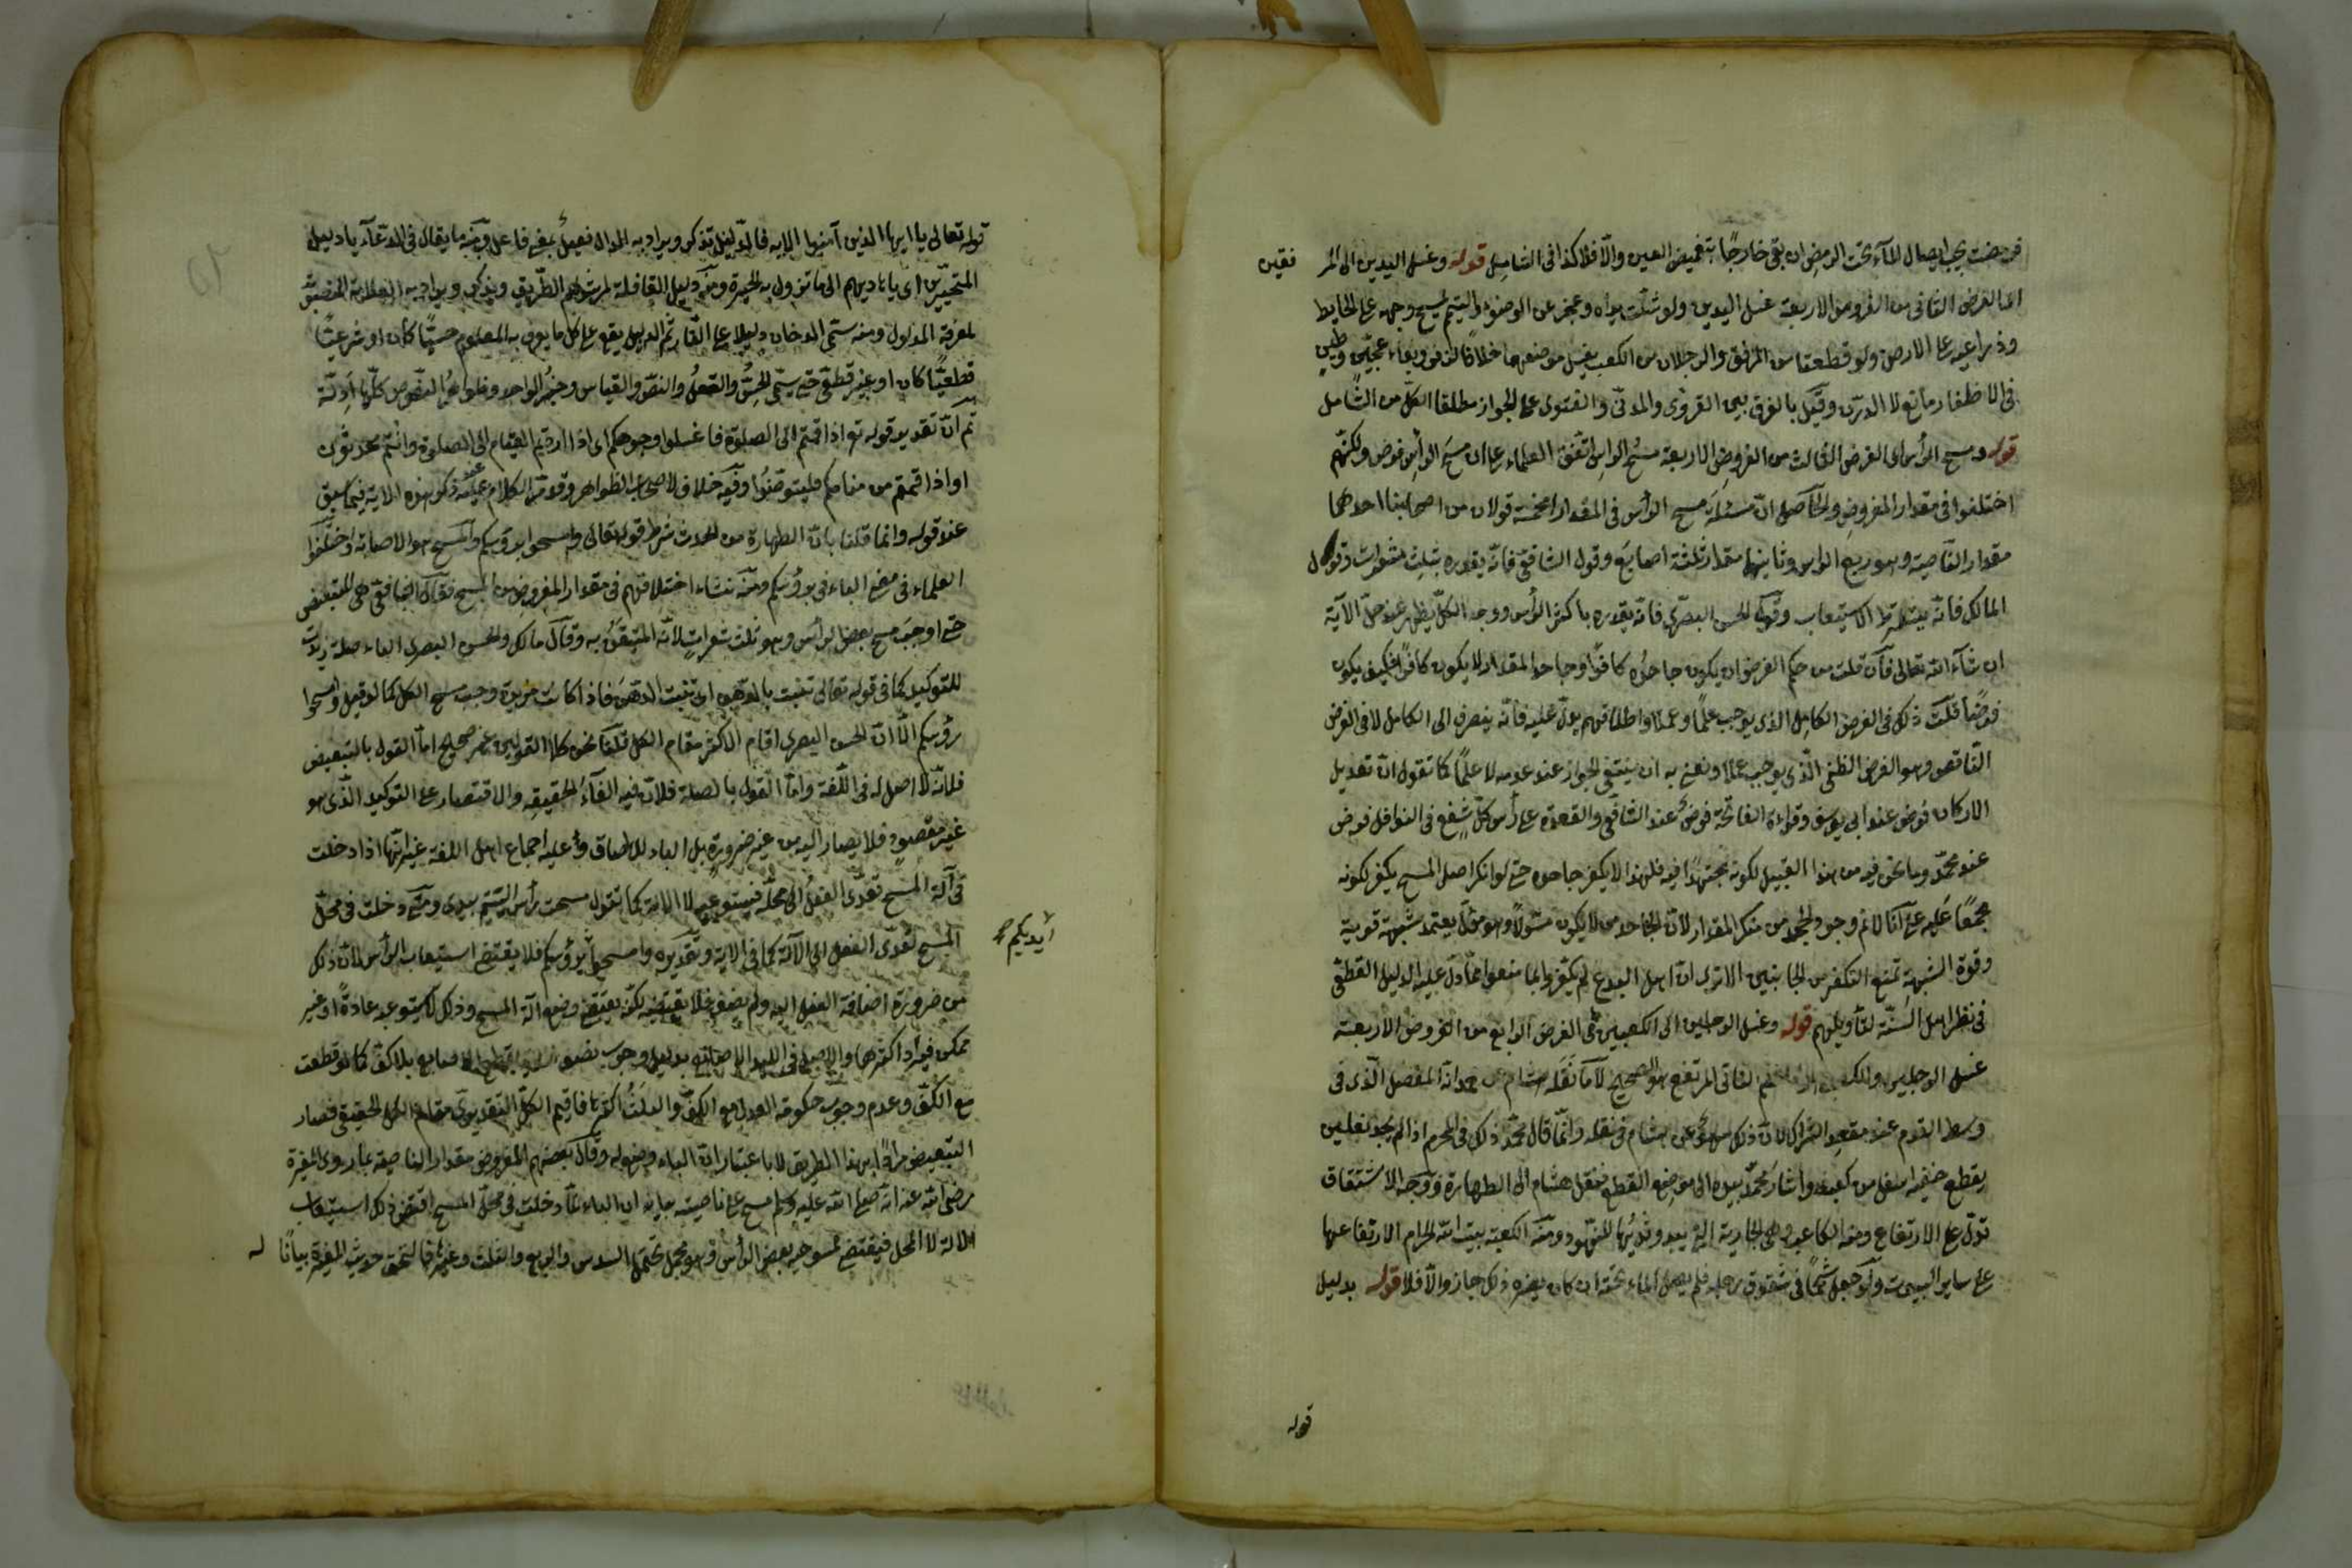 فرمضت يجب ايصال المآء تحت الرمص ان بقى خارجًا بتغميض العين والّا فلا كذا فى الشامل قوله وغسل اليدين الى المر فقين
اى الفرض الثانى من الفروض الاربعة غسل اليدين ولو شلّت يداه وعجز عن الوضوء والتيمّم يمسح وجهه على الحايط
وذراعيه على الارض ولو قطعتا من المرفق والرجلان من الكعب يغسل موضعهما خلافًا لزفر وبقاء عجين وطين
فى الاظفار مانع لا الدرن وقيل بالفرق بين القروى والمدنى والفتوى على الجواز مطلقا الكلّ من الشامل
قوله ومسح الرأس اى الفرض الثالث من الفروض الاربعة مسح الراس اتفق العلماء على ان مسح الرأس فرض ولكنّهم
اختلفوا فى مقدار المفروض والحاصل انّ مسئلة مسح الرأس فى المقدار خمسة قولان من اصحابنا احدهما
مقدار الناصية وهو ربع الراس وثانيها مقدار ثلثة اصابع وقول الشافعى فانه يقدره بثلث شعرات وقول
المالك فانّه يشترط الاستيعاب وقول الحسن البصرى فانه يقدره باكثر الرأس ووجه الكلّ يظهر عند حلّ الآية
ان شآء الله تعالى فان قلت من حكم الفرض ان يكون جاحده كافرًا وجاحد المقدار لا يكون كافرًا فكيف يكون
فرضًا قلت ذلك فى الفرض الكامل الذى يوجب علمًا وعملا واطلاقهم يدلّ عليه فانّه ينصرف الى الكامل لا فى الفرض
الناقص وهو الفرض الظنى الّذى يوجب عملا ونعنى به ان ينتفى الجواز عند عدمه لا علمًا كما تقول انّ تعديل
الاركان فرض عند ابى يوسف وقراءة الفاتحة فرض عند الشافعى والقعدة على رأس كلّ شفع فى النوافل فرض
عند محمّد وما نحن فيه من هذا القبيل لكونه مجتهدًا فيه فلهذا لا يكفر جاحده حتى لو انكر اصل المسح يكفر لكونه
مجمعًا عليه على انّا لانم وجود الجحد من منكر المقدار لانّ الجاحد من لا يكون مئولًا وهو مؤل يعتمد شبهة قوية
وقوة الشبهة تمنع التكفير من الجانبين الا ترى انّ اهل البدع لم يكفروا بما منعوا عمّا دلّ عليه الدليل القطعى
فى نظر اهل السنّة لتأويلهم قوله وغسل الرجلين الى الكعبين اى الفرض الرابع من الفروض الاربعة
غسل الرجلين والكعب الناتى المرتفع هو الصحيح لا ما نقله هشام عن محمد انّه المفصل الّذى فى
وسط القدم عند مقعد الشراك لانّ ذلك سهو عن هشام فى نقله وانّما قال محمّد ذلك فى المحرم اذا لم يجد نعلين
يقطع خفيه اسفل من كعبيه واشار محمّد بيده الى موضع القطع فنقل هشام الى الطهارة ووجه الاشتقاق
تدلّ على الارتفاع ومنه الكاعب وهى الجارية التى يبدو ثديُها للنهود ومنه الكعبة بيت الله الحرام لارتفاعها
على ساير البيوت ولو جعل شحمًا فى شقوق رجله فلم يصل الماء تحته ان كان يضره ذلك جاز والّا فلا قوله بدليل
قوله
قوله تعالى يا ايها الذين آمنوا الاية فالدليل يذكر ويراد به الدال فعيل بمعنى فاعل ومنه ما يقال فى الدعآء يا دليل
المتحيّرين اى يا هاديهم الى ما تزول به الحيرة ومنه دليل القافلة لمرشدهم الطريق ويذكر ويراد به العلامة المنصبة
لمعرفة المدلول ومنه سمّى الدخان دليلا على النار ثم الدليل يقع على كل ما يعرف به المعلوم حسيًّا كان او شرعيًّا
قطعيًّا كان او غير قطعى حتى يسمّى الحسّ والعقل والنصّ والقياس وخبر الواحد وظواهر النصوص كلّها ادلّة
ثم انّ تقدير قوله تع اذا قمتم الى الصلوة فاغسلوا وجوهكم اى اذا اردتم القيام الى الصلوة وانتم محدثون
او اذا قمتم من منامكم فليتوضئوا وفيه خلاف لاصحاب الظواهر وقد مرّ الكلام عليه عند ذكر هذه الاية فيما سبق
عند قوله وانما قلنا بانّ الطهارة من الحدث شرط قوله تعالى وامسحوا برؤسكم والمسح هو الاصابة واختلفوا
العلماء فى معنى الباء فى برؤسكم ومنه نشاء اختلافهم فى مقدار المفروض من المسح فقال الشافعى هى للتبعيض
حتى اوجب مسح بعض الرأس وهو ثلث شعرات لانّه المتيقن به وقال مالك والحسن البصرى الباء صلة زيدت
للتوكيد كما فى قوله تعالى تنبت بالدهن اى تنبت الدهن فاذا كانت مزيدة وجب مسح الكل كما لو قيل وامسحوا
رؤسكم الّا انّ الحسن البصرى اقام الاكثر مقام الكل قلنا نحن كلا القولين غير صحيح امّا القول بالتبعيض
فلانّه لا اصل له فى اللّغة وامّا القول بالصلة فلانّ فيه الغآء الحقيقه والاقتصار على التوكيد الّذى هو
غير مقصود فلا يصار اليه من غير ضرورة بل الباء للالصاق وعليه اجماع اهل اللغة غير انّها اذا دخلت
فى آلة المسح تعدّى الفعل الى محلّه فيستوعبه لا الالة كما تقول مسحت رأس اليتيم بيدى ومتى دخلت فى محلّ
المسح تعدّى الفعل الى الآلة كما فى الاية وتقديره وامسحوا برؤسكم فلا يقتضى استيعاب الرأس لانّ ذلك
ايديكم صح
من ضرورة اضافة الفعل اليه ولم يضف فلا يقتضيه لكنّه يقتضى وضع آلة المسح وذلك لا يستوعبه عادةً او غير
ممكن فيراد اكثرها والاصل فى اليد الاصابع بدليل وجوب نصف الدية بقطع الاصابع بلا كف كما لو قطعت
مع الكفّ وعدم وجوب حكومة العدل مع الكفّ والثلث اكثرها فاقيم الكلّ التقديرى مقام الكل الحقيقى فصار
التبعيض مرادًا بهذا الطريق لا باعتبار انّ الباء وضع له وقال بعضهم المفروض مقدار الناصية بما روى المغيرة
رضى الله عنه انّه صلّى الله عليه وسلم مسح على ناصيته بيانه ان الباء لمّا دخلت فى محلّ المسح اقتضى ذلك استيعاب
الالة لا المحل فيقتضى ممسوحية بعض الرأس وهو مجمل يحتمل السدس والربع والثلث وغيرها فالتحق حديث المغيرة بيانًا له